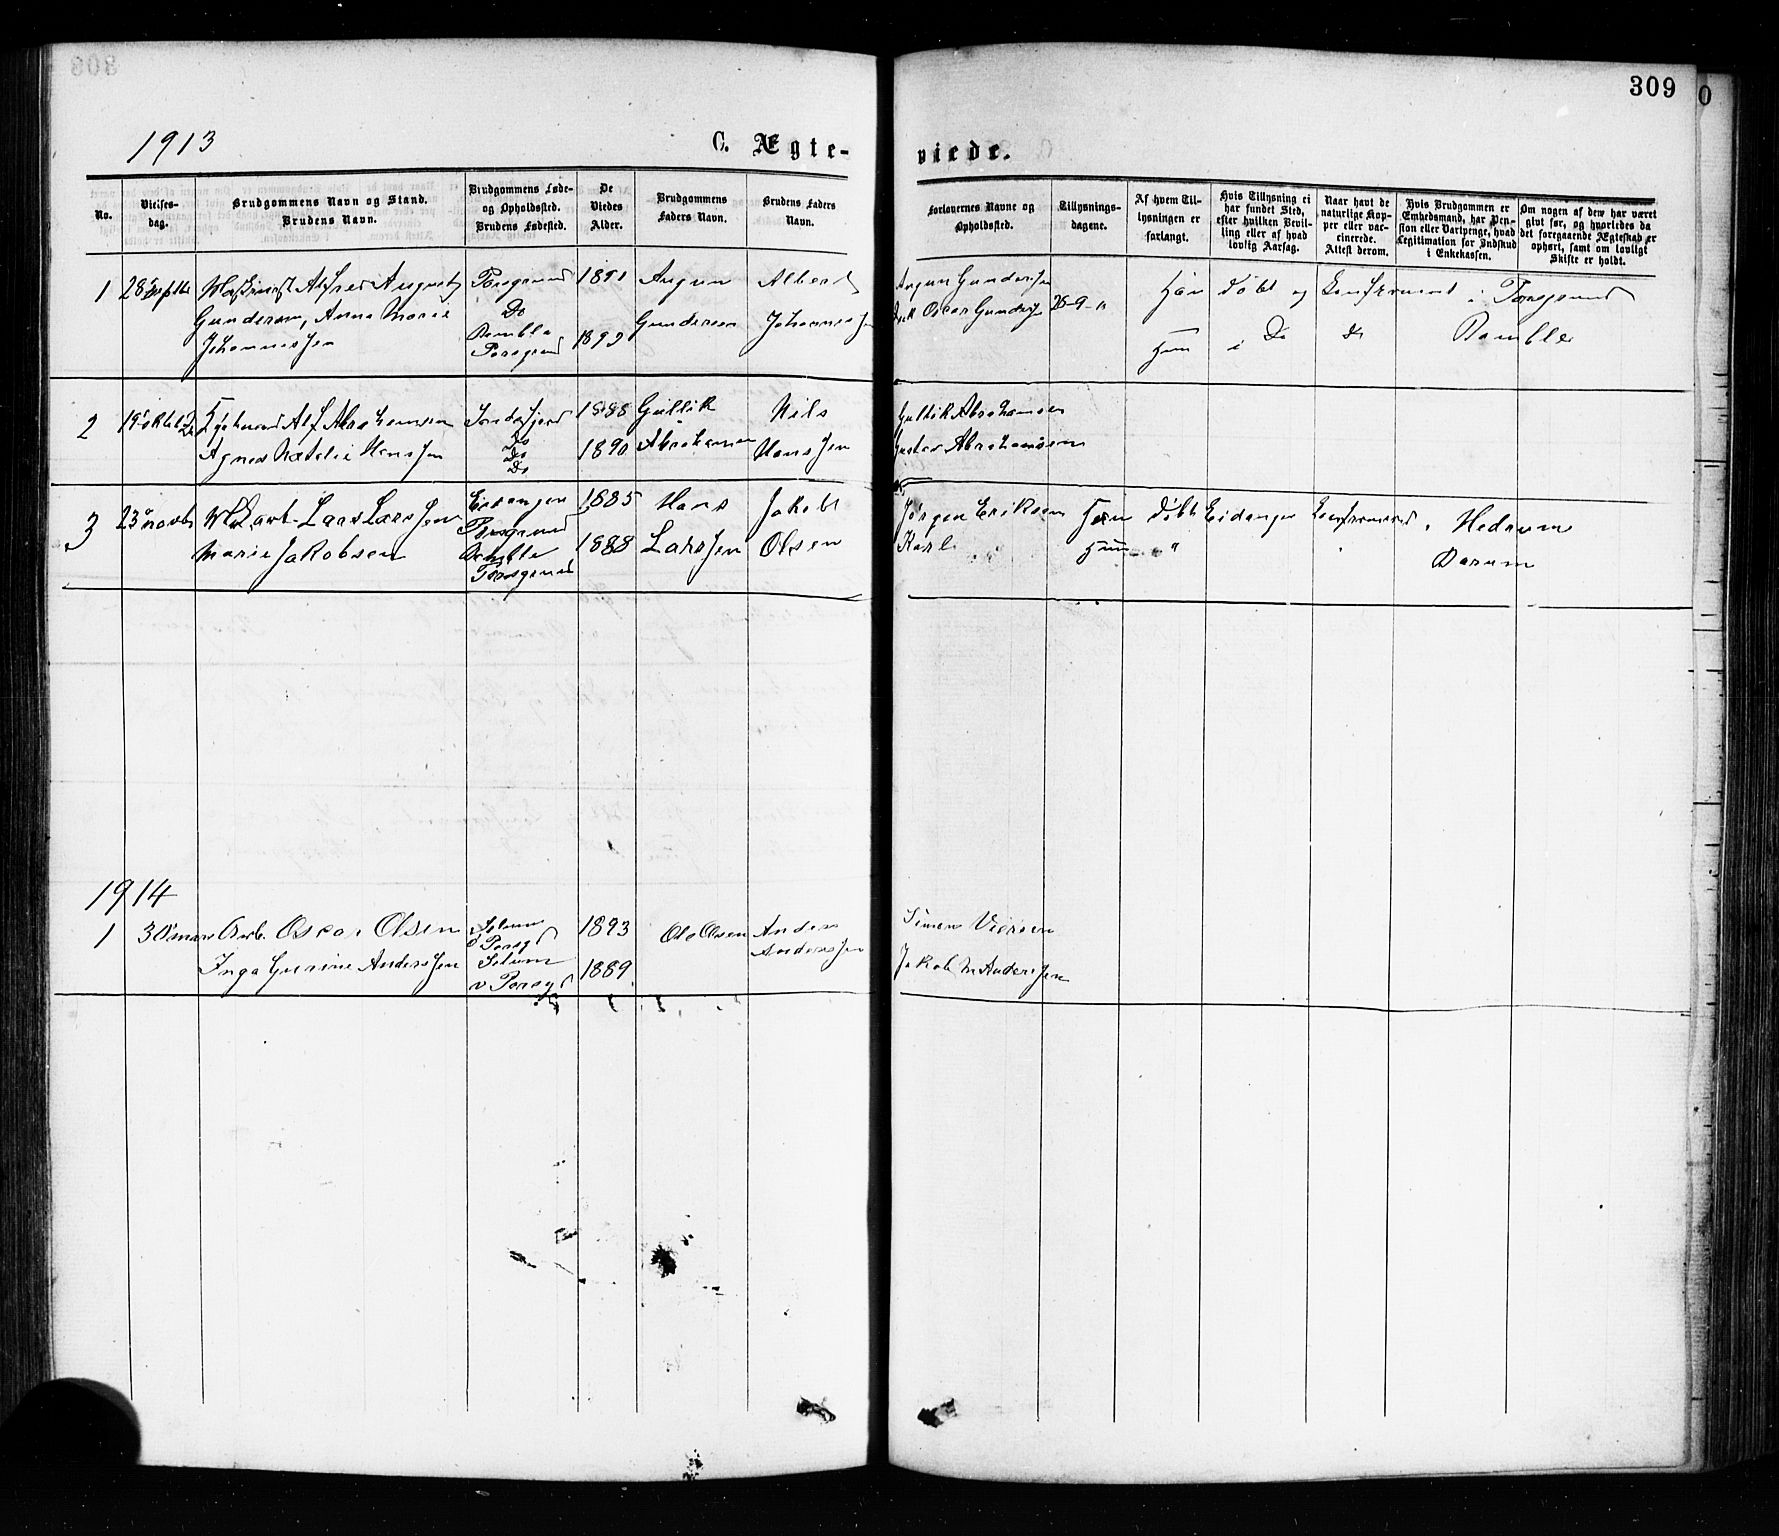 309
1913
C. Ægte-
viede.
No.
Vielses-
dag.
Brudgommens Navn og Stand.
Brudens Navn.
Brudgommens Føde-
og Opholdssted.
Brudens Fødested.
De
Viedes
Alder.
Brudgommens
Faders Navn.
Brudens Faders
Navn.
Forlovernes Navne og
Opholdssted.
Tillysnings-
dagene.
Af hvem Til-
lysningen er
forlangt.
Hvis Tillysning ei
har fundet Sted,
efter hvilken Bevil-
ling eller af hvad
lovlig Aarsag.
Naar havt de
naturlige Kop-
per eller vac-
cinerede.
Attest derom.
Hvis Brudgommen er
Embedsmand, har Pen-
sion eller Vartpenge, hvad
Legitimation for Indskud
i Enkekassen.
Om nogen af dem har været
gift før, og hvorledes da
det foregaaende Ægteskab er
ophørt, samt om lovligt
Skifte er holdt.
1
Maskinist Alfred August
Gundersen, Anna Marie
Johannessen
Porsgrund
Do
Bamble
Porsgrund
1891
Gundersen
Albert
Johannessen
Gundersen
Oscar Gundersen
Han døbt og konfirmeret i Porsgrund
Hun i Do Do Bamble
2
Alf Abrahamsen
Agnes Natalie Hanssen
Do
Do
1888
1890
Gullik
Abrahamsen
Nils
Hanssen
Gullik Abrahamsen
Gustav Abrahamsen
3
23 novbr
Lars Larssen
Marie Jakobsen
Eidanger
Porsgrund
Bamble
Porsgrund
1885
1888
Hans
Larssen
Jakob
Olsen
Jørgen Eriksen
Karl
Han døbt Eidanger konfirmeret i Hedrum
Hun "
1914
1
30 mars
Arb. Oscar Olsen
Inga Gurine Anderssen
Solum
Porsgr
Solum
v Porsgr
1893
1889
Ole Olsen
Anders
Anderssen
Simen
Jakob M Anderssen
0